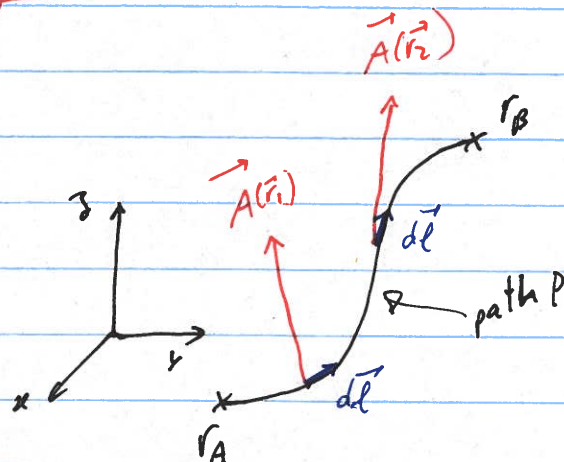 A⃗(r⃗₂)
r_B
A⃗(r⃗₁)
z
dl⃗
path P
y
x
dl⃗
r_A